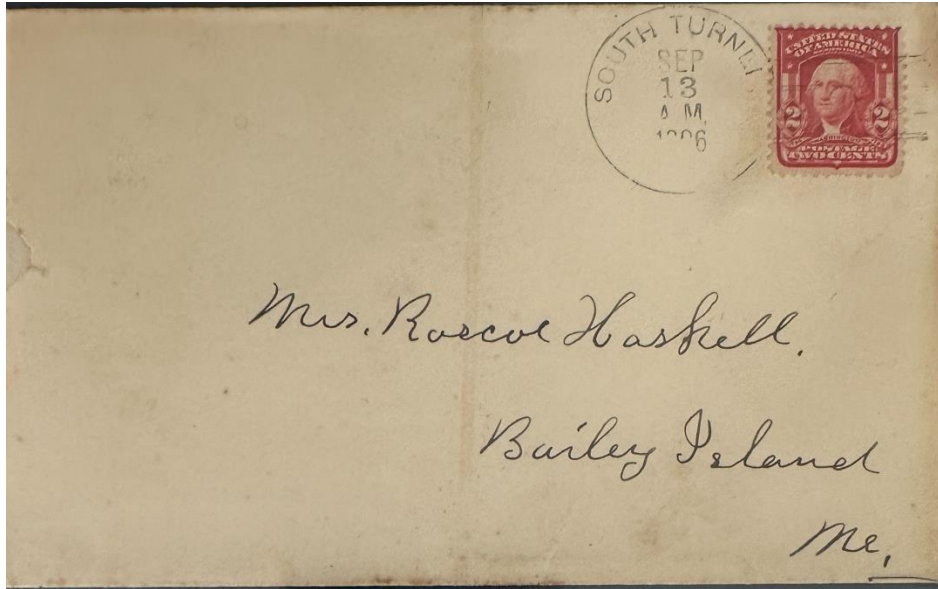 SOUTH TURNE
SEP
13
A.M.
1906
UNITED STATES
OF AMERICA
2 2
POSTAGE
TWO CENTS
Mrs. Roscoe Haskell.
Bailey Island
Me.